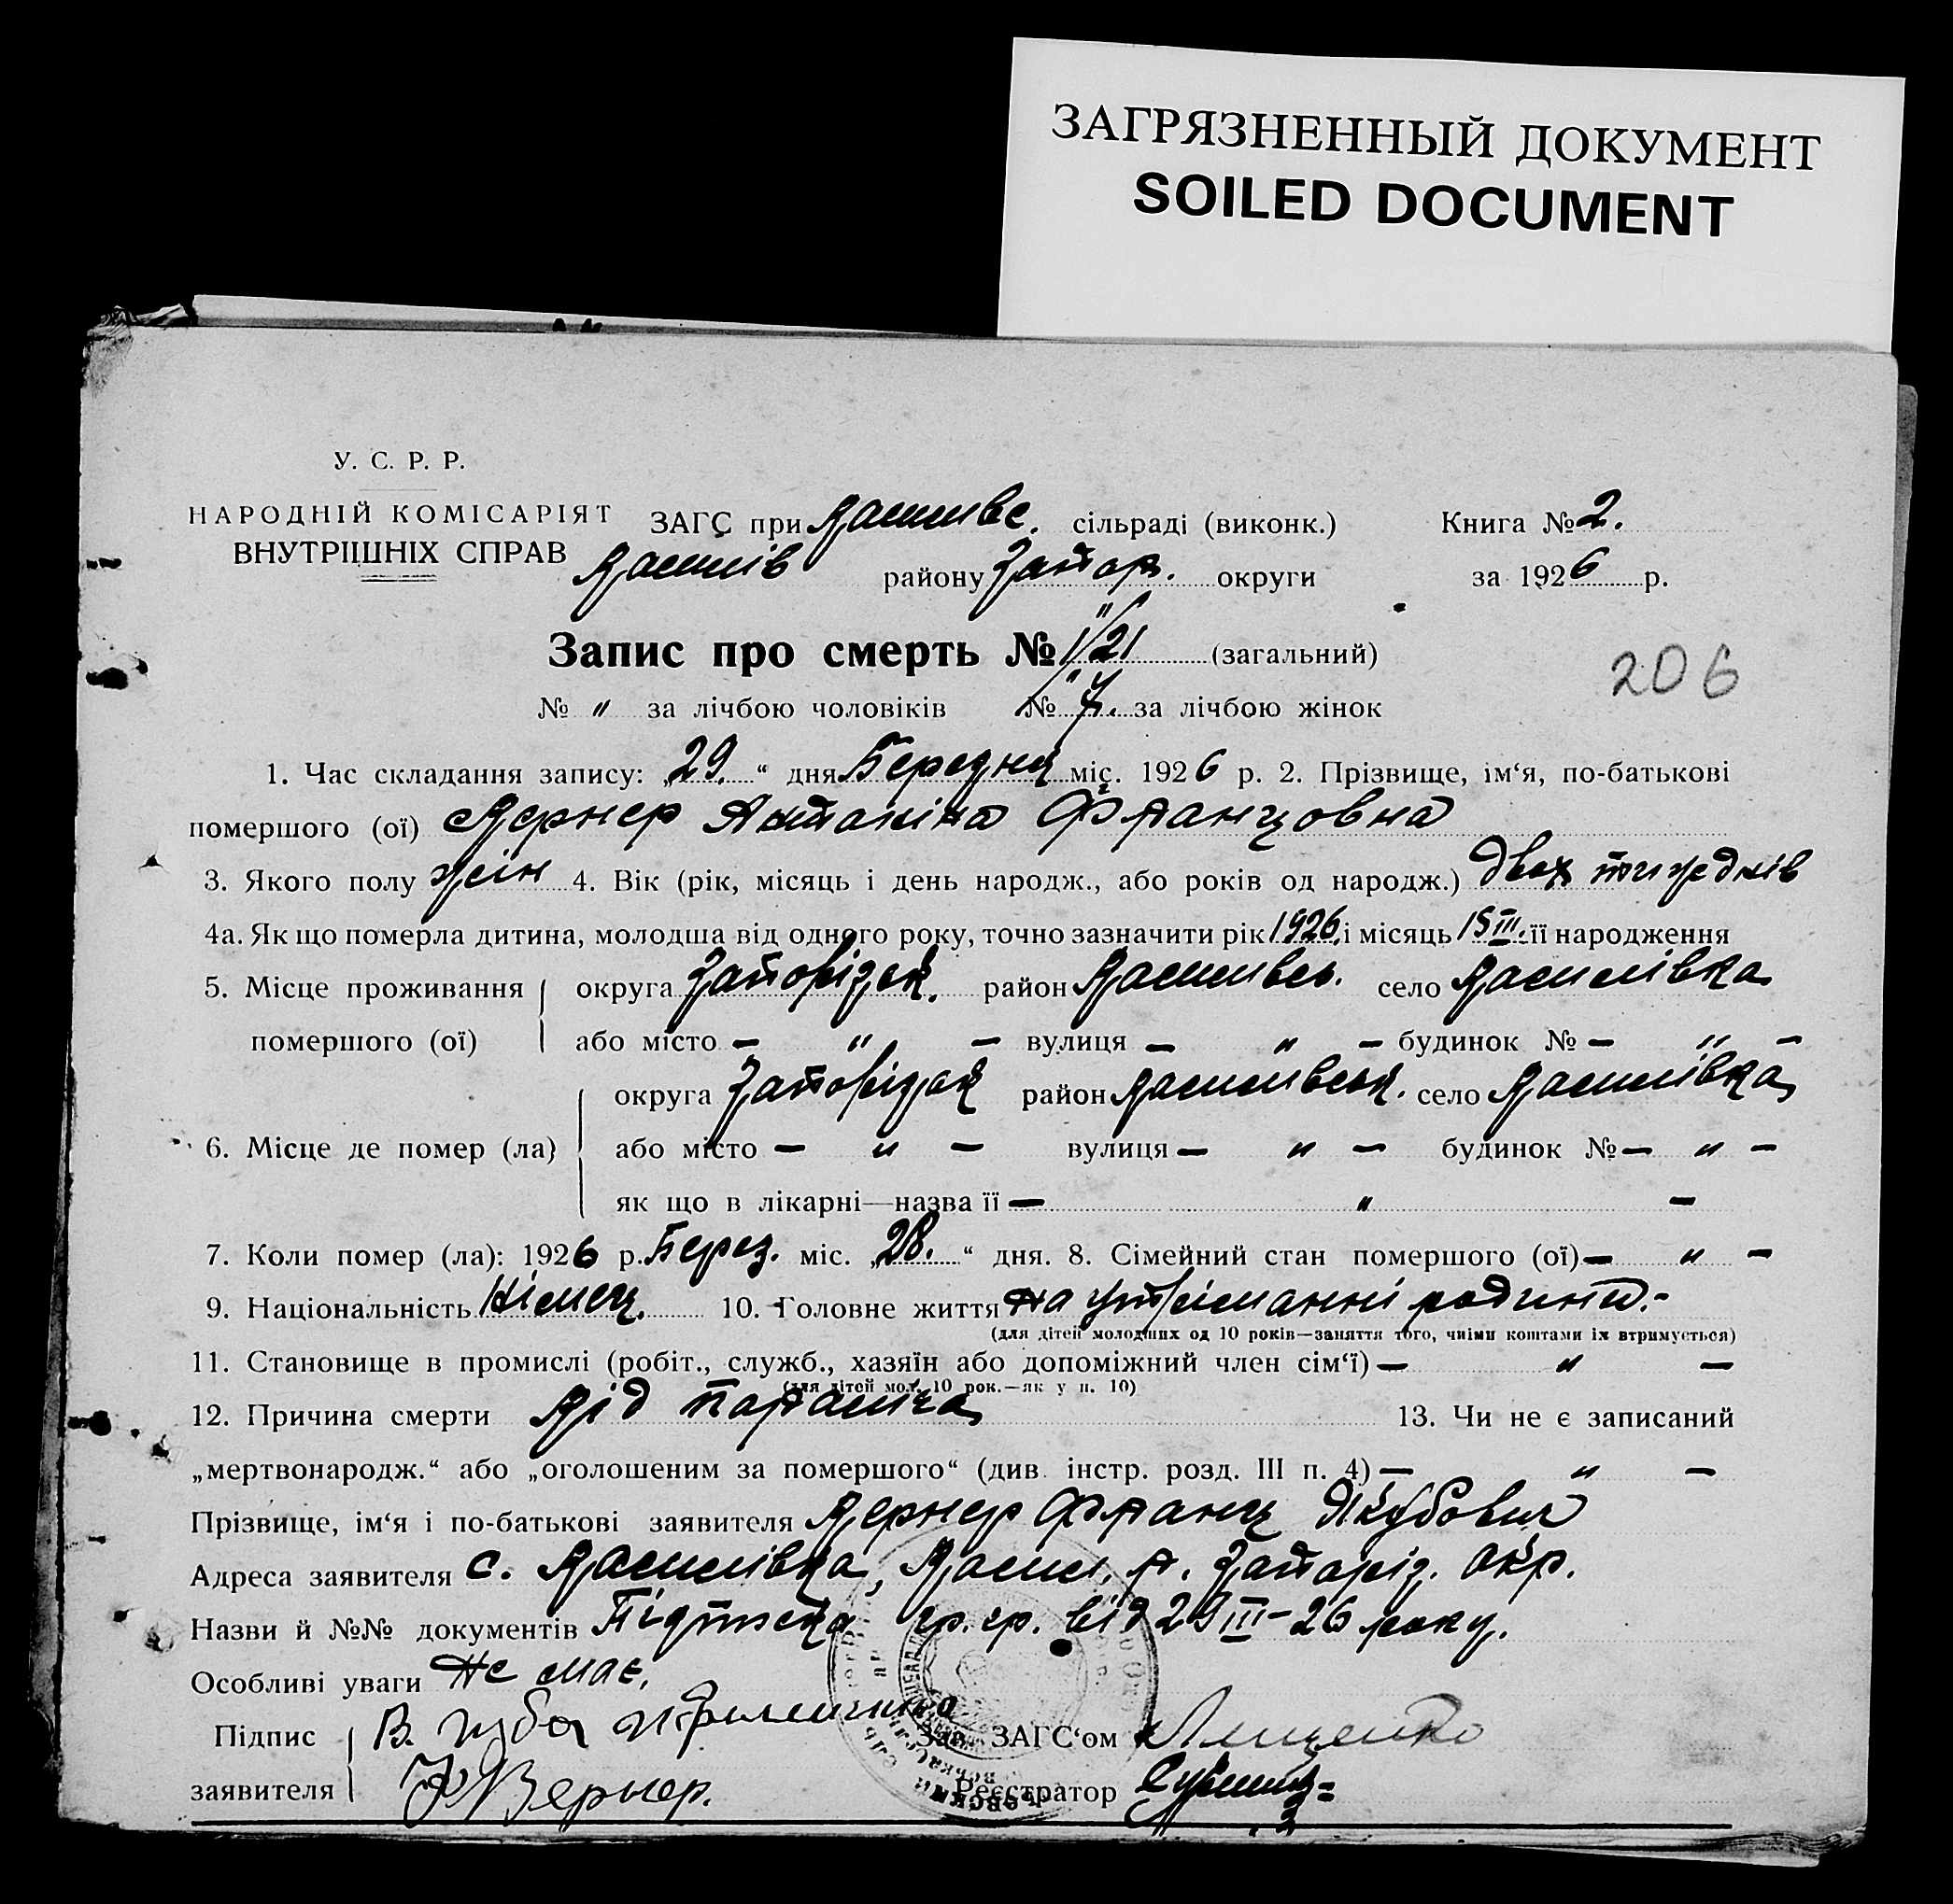 ЗАГРЯЗНЕННЫЙ ДОКУМЕНТ
SOILED DOCUMENT
У. С. Р. Р.
НАРОДНІЙ КОМІСАРІЯТ
ВНУТРІШНІХ СПРАВ
ЗАГС при Василівс. сільраді (виконк.) Книга № 2.
Василів району Запор. округи за 1926 р.
Запис про смерть № 21 (загальний)
206
№ " за лічбою чоловіків № за лічбою жінок
1. Час складання запису: „29.“ дня Березня міс. 1926 р. 2. Прізвище, ім‘я, по-батькові
помершого (ої) Вернер Антоніна Францовна
3. Якого полу жін 4. Вік (рік, місяць і день народж., або років од народж.) двох тижднів
4а. Як що померла дитина, молодша від одного року, точно зазначити рік 1926. і місяць 15 III. її народження
5. Місце проживання округа Запорізьк. район Василівсь. село Василівка
помершого (ої) або місто — " — вулиця — " — будинок № — " —
округа Запорізьк район Василівськ. село Василівка
6. Місце де помер (ла) або місто — " — вулиця — " — будинок № — " —
як що в лікарні—назва її — " —
7. Коли помер (ла): 1926 р. Берез. міс. „28.“ дня. 8. Сімейний стан помершого (ої) — " —
9. Національність Німец. 10. Головне життя на утріманні родини.-
(для дітей молодших од 10 років—заняття того, чиїми коштами їх втримується)
11. Становище в промислі (робіт., служб., хазяїн або допоміжний член сім‘ї) — " —
(для дітей мол. 10 рок.—як у п. 10)
12. Причина смерти Від параліча 13. Чи не є записаний
„мертвонародж.“ або „оголошеним за помершого“ (див. інстр. розд. III п. 4) — " —
Прізвище, ім‘я і по-батькові заявителя Вернер Франц Якубович
Адреса заявителя с. Василівка, Васил. р. Запоріз. окр.
Назви й №№ документів Підписка гр. гр. від 29 III-26 року.
Особливі уваги Не має.
Підпис Зав. ЗАГС‘ом
заявителя Вернер. Реєстратор